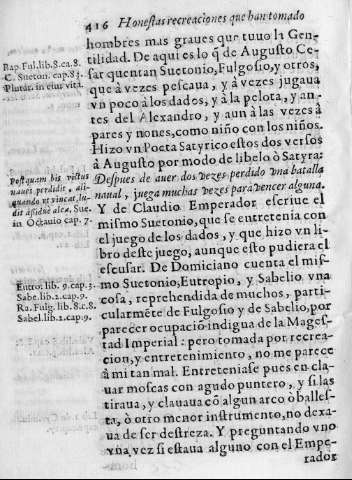 416 Honestas recreaciones que han tomado
hombres mas graues que tuuo la Gen-
tilidad. De aqui es lo q̃ de Augusto Ce-
sar quentan Suetonio, Fulgosio, y otros,
que à vezes pescaua, y à vezes jugaua
vn poco à los dados, y à la pelota, y an-
tes del Alexandro, y aun à las vezes à
pares y nones, como niño con los niños.
Hizo vn Poeta Satyrico estos dos versos
à Augusto por modo de libelo ò Satyra:
Despues de auer dos vezes perdido vna batalla
naual, juega muchas vezes para vencer alguna.
Y de Claudio Emperador escriue el
mismo Suetonio, que se entretenia con
el juego de los dados, y que hizo vn li-
bro deste juego, aunque esto pudiera el
escusar. De Domiciano cuenta el mis-
mo Suetonio, Eutropio, y Sabelio vna
cosa, reprehendida de muchos, parti-
cularmẽte de Fulgosio y de Sabelio, por
parecer ocupaciõ indigua de la Mages-
tad Imperial: pero tomada por recrea-
cion, y entretenimiento, no me parece
à mi tan mal. Entreteniase pues en cla-
uar moscas con agudo puntero, y si las
tiraua, y clauaua cõ algun arco ò balles-
ta, ò otro menor instrumento, no dexa-
ua de ser destreza. Y preguntando vno
vna vez si estaua alguno con el Empe-
rador
Rap. Ful. lib. 8. ca. 8.
C. Sueton. cap. 83.
Plutár. in eius vita.
Postquam bis victus
naues perdidit, ali-
quando vt vincat, lu-
dit assidue alea. Sue.
in Octauio cap. 7.
Eutro. lib. 9. cap. 3.
Sabe. lib. 2. cap. 9.
Ra. Fulg. lib. 8. c. 8.
Sabel. lib. 2. cap. 9.